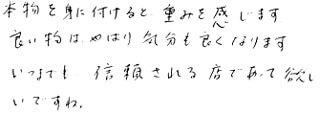 本物を身に付けると 重みを感じます
良い物は やはり 気分も良くなります
いつまでも 信頼される店であって欲し
いですね。